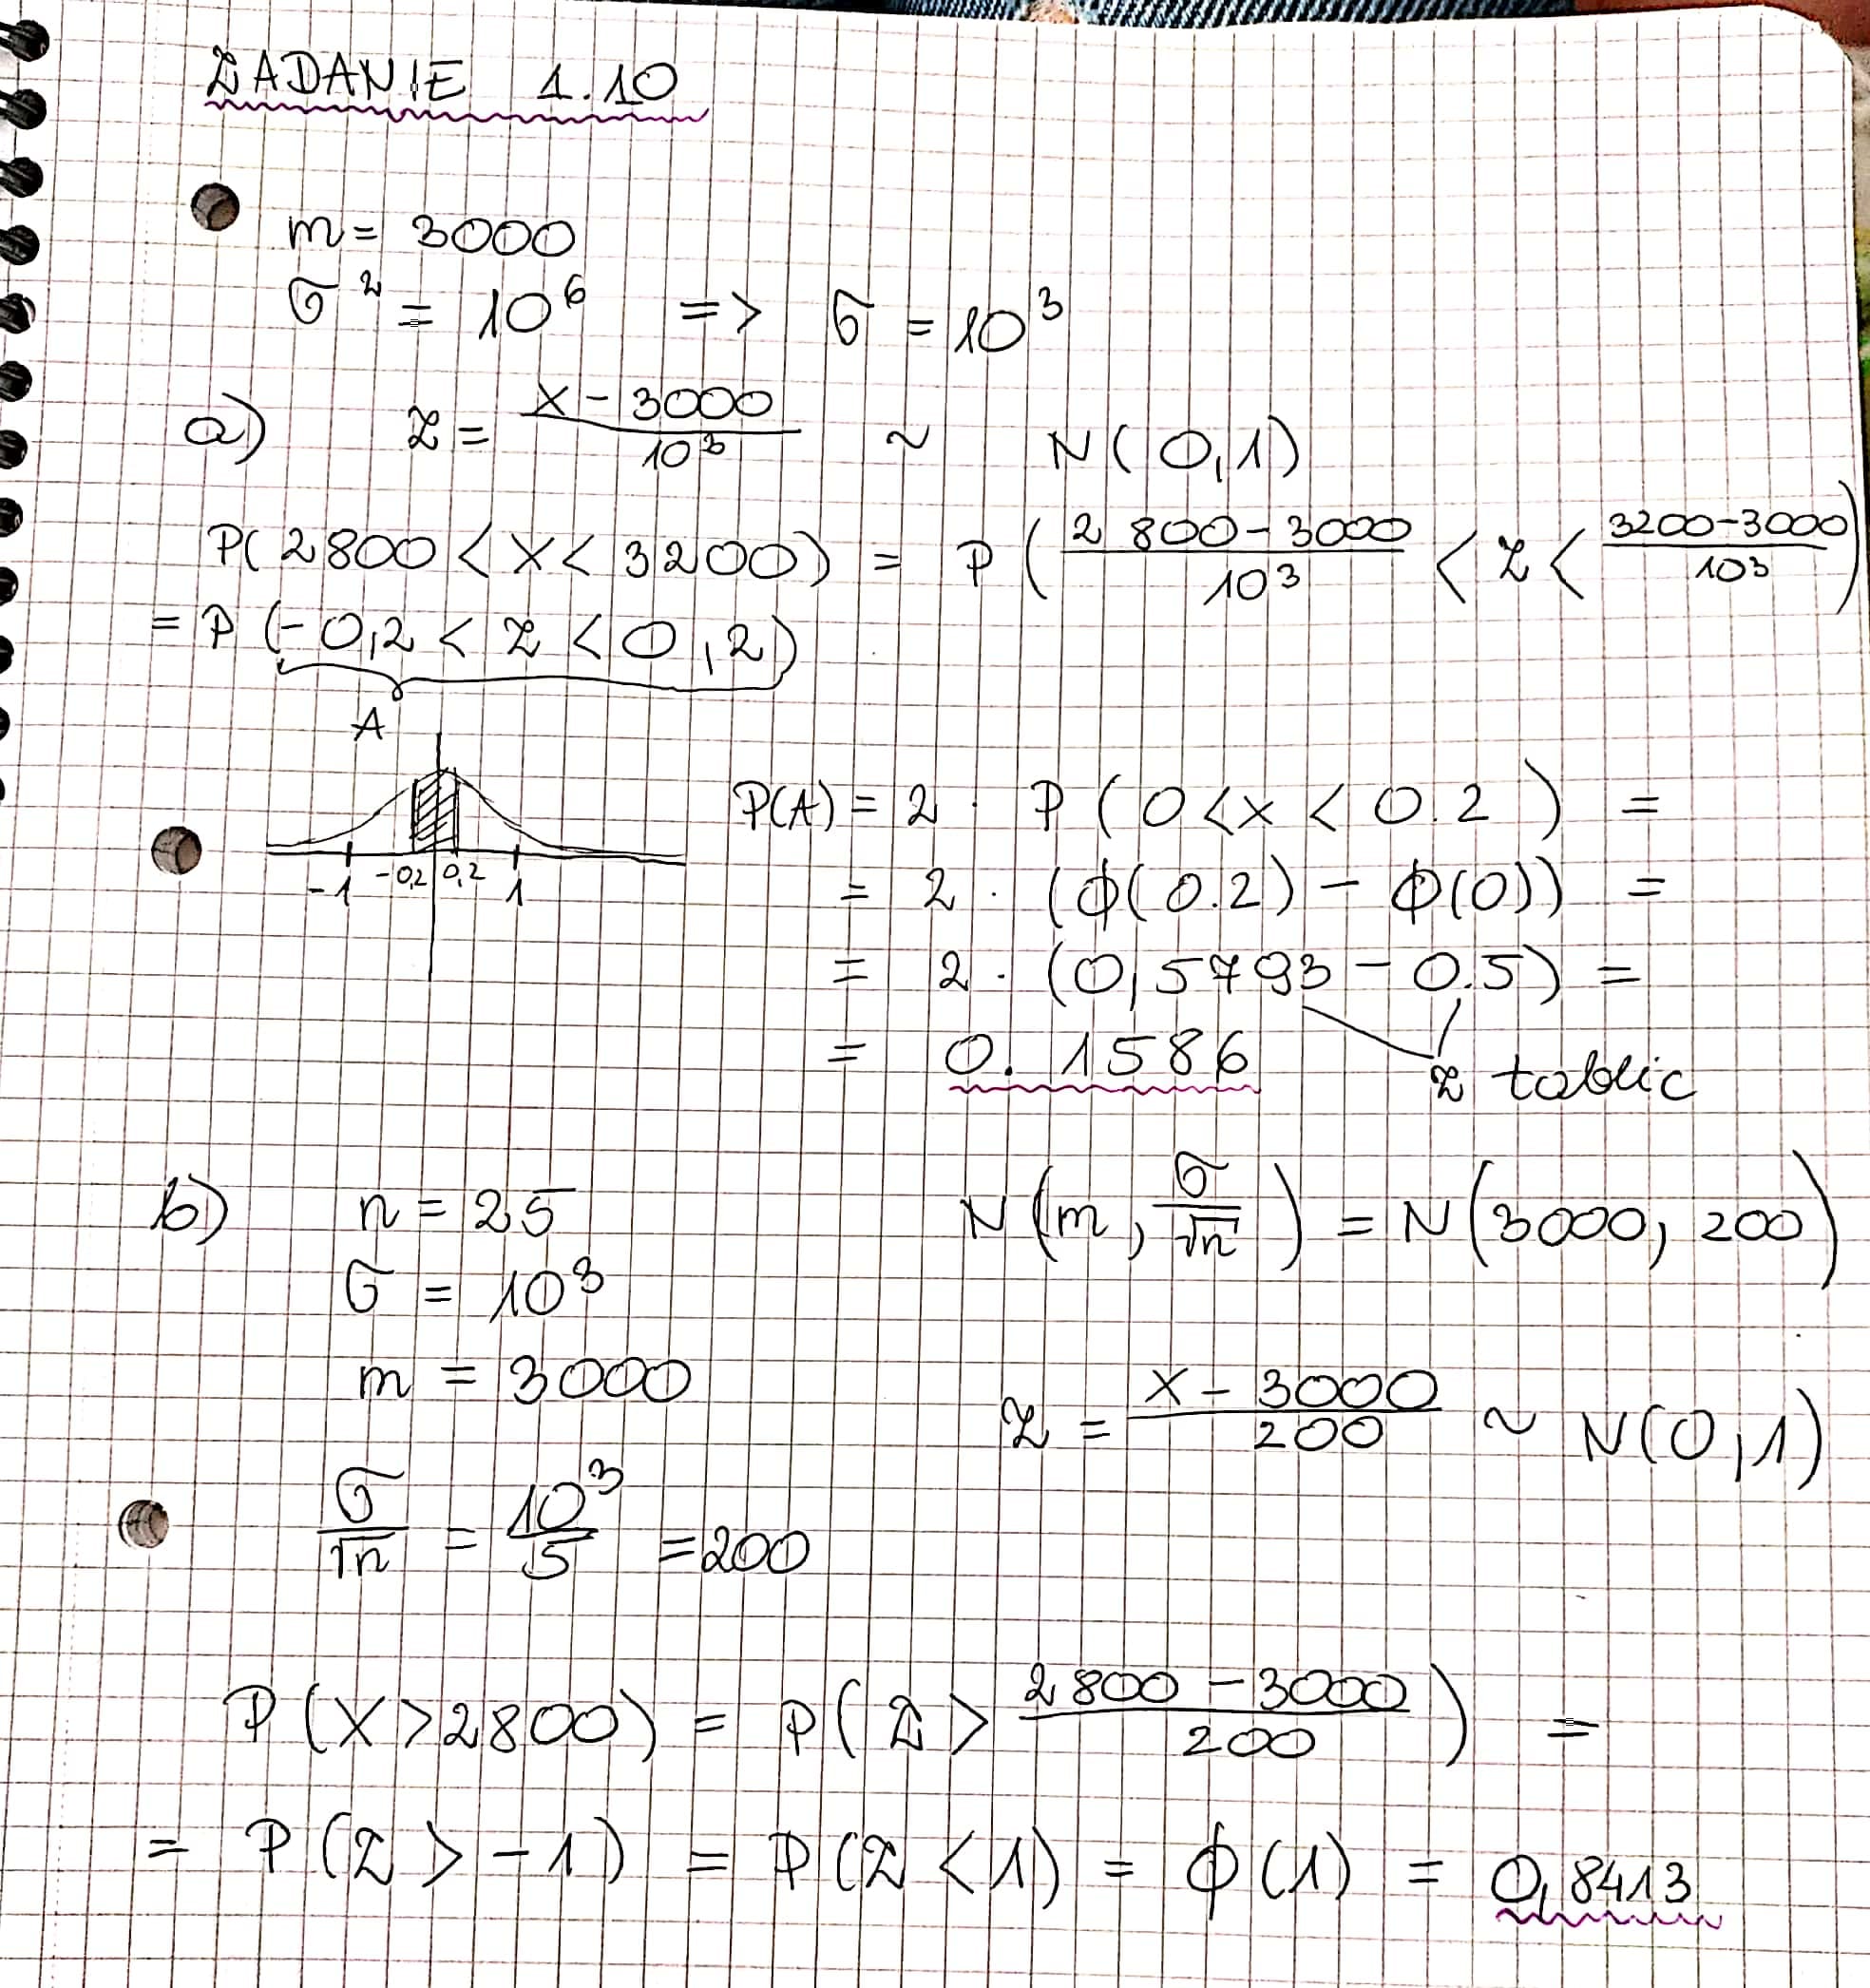 ZADANIE 1.10
m = 3000
σ² = 10⁶ => σ = 10³
a) Z = (x - 3000)/10³ ~ N(0,1)
P(2800 < X < 3200) = P((2800-3000)/10³ < Z < (3200-3000)/10³)
= P(-0,2 < Z < 0,2)
A
-1 -0,2 0,2 1
P(A) = 2 · P(0 < x < 0.2) =
= 2 · (ϕ(0.2) - ϕ(0)) =
= 2 · (0,5793 - 0.5) =
= 0.1586
z tablic
b) n = 25
σ = 10³
m = 3000
σ/√n = 10³/5 = 200
N(m, σ/√n) = N(3000, 200)
Z = (X - 3000)/200 ~ N(0,1)
P(X > 2800) = P(Z > (2800 - 3000)/200) =
= P(Z > -1) = P(Z < 1) = ϕ(1) = 0,8413